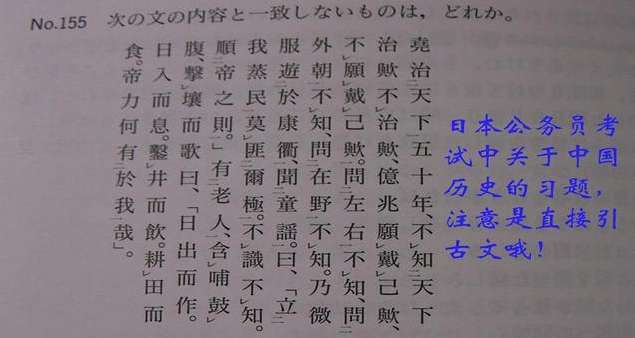 No.155 次の文の内容と一致しないものは，どれか。
堯治天下五十年、不知天下
治歟不治歟、億兆願戴己歟、
不願戴己歟。問左右不知、問
外朝不知、問在野不知。乃微
服遊於康衢、聞童謡。曰、「立
我蒸民莫匪爾極。不識不知。
順帝之則。」有老人、含哺鼓
腹、撃壤而歌曰、「日出而作。
日入而息。鑿井而飲。耕田而
食。帝力何有於我哉」。
日本公务员考
试中关于中国
历史的习题，
注意是直接引
古文哦！